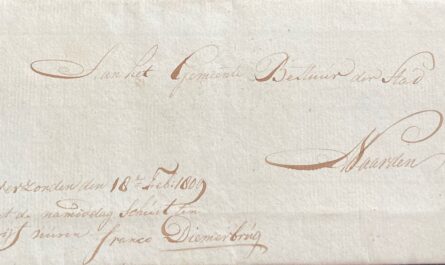 Aan het Gemeente Bestuur der Stad
Naarden
den 18de Feb: 1809
de namiddag Schuit ten
uuren franco Diemerbrug